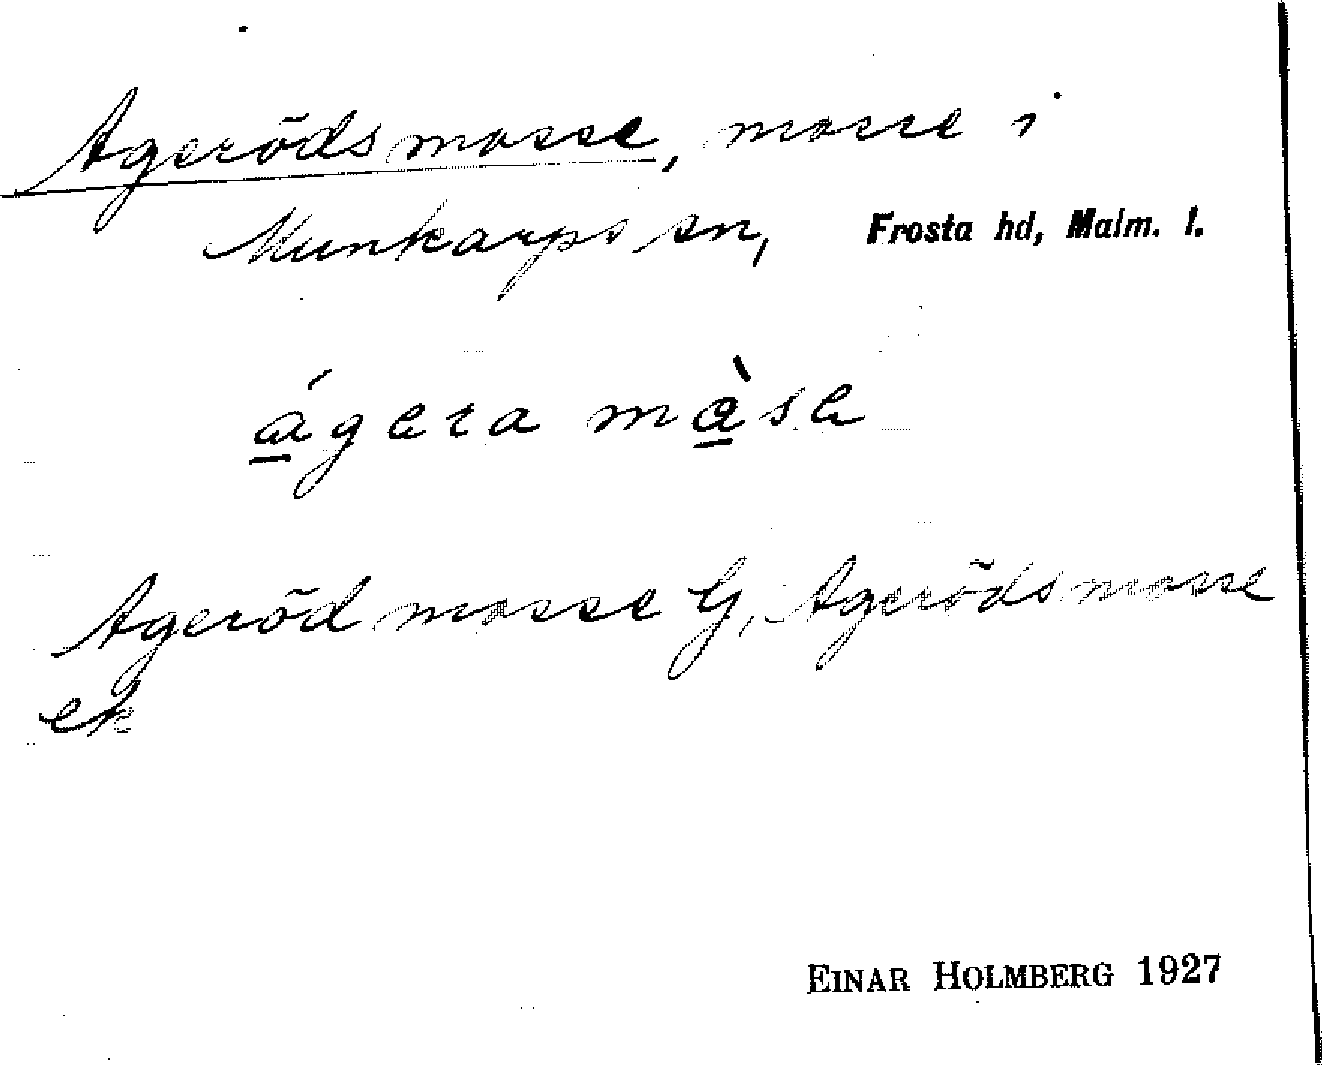 Agerödsmosse, mosse i
Munkarps sn, Frosta hd, Malm. l.
ágera màse
Ageröd mosse G, Agerödsmosse
ek
EINAR HOLMBERG 1927